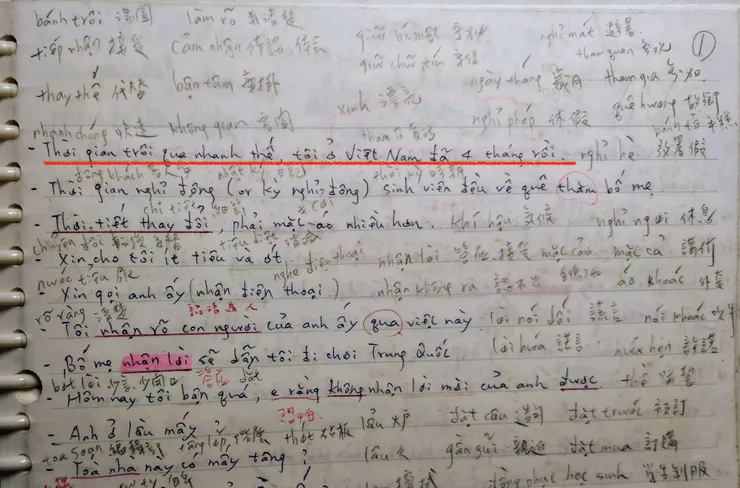 bánh trôi 湯圓 làm rõ 弄清楚 giữ bí mật nghỉ mát 避暑
tiếp nhận 接受 cảm nhận giữ chữ tín 守信 tham quan 參觀 ①
thay thế 代替 bận tâm 牽掛 ngày tháng 歲月 tham gia 參加
xinh 漂亮 nghỉ phép 休假 quê hương 故鄉
nhanh chóng 快速 không gian 空間 tham ô
- Thời gian trôi qua nhanh thế, tôi ở Việt Nam đã 4 tháng rồi. nghỉ hè 放暑假
đông khách nhật ký 日記 thời kỳ 時期
- Thời gian nghỉ đông (or kỳ nghỉ đông) sinh viên đều về quê thăm bố mẹ.
chi tiết 細節
- Thời tiết thay đổi, phải mặc áo nhiều hơn. khí hậu 氣候 nghỉ ngơi 休息
chuyển đổi
- Xin cho tôi ít tiêu và ớt nghe điện thoại nhận lời 答應, 接受 mặc cả 講價
nước tiểu 尿
- Xin gọi anh ấy (nhận điện thoại) nhận không ra 認不出 áo khoác 外套
rõ ràng 清楚
- Tôi nhận rõ con người của anh ấy qua việc này lời nói dối 謊言 nói khoác 吹牛
- Bố mẹ nhận lời sẽ dẫn tôi đi chơi Trung Quốc lời hứa 諾言 hứa hẹn 許諾
bớt lời 少言 dắt
- Hôm nay tôi bận quá, e rằng không nhận lời mời của anh được thề
- Anh ở lầu mấy lẩu 火鍋 đặt câu 造句 đặt trước 預訂
toà soạn tầng lớp 階層 thớt 砧板
- Tòa nhà này có mấy tầng? gần gũi 親近 đặt mua 訂購
đồng phục học sinh 學生制服